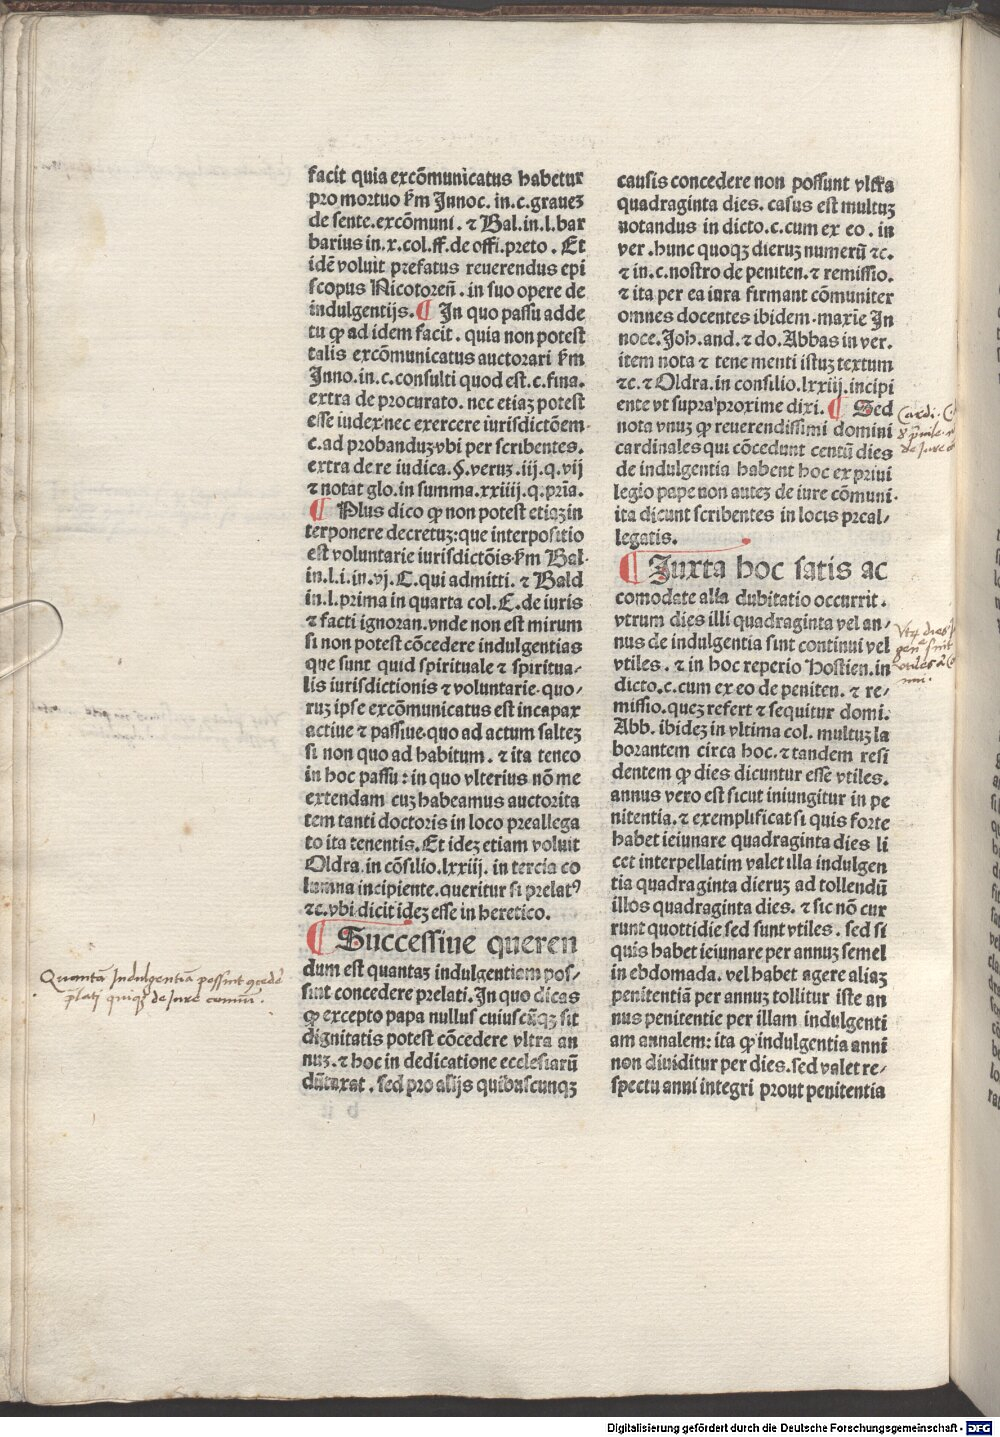 facit quia excõmunicatus habetur
pro mortuo ẜm Innoc. in.c.grauez
de sente.excõmuni. ⁊ Bal.in.l.bar
barius in.x.col.ff.de offi.preto. Et
idẽ voluit prefatus reuerendus epi
scopus Nicotoreñ. in suo opere de
indulgentijs. ¶ In quo passu adde
tu ꝙ ad idem facit. quia non potest
talis excõmunicatus auctorari ẜm
Inno.in.c.consulti quod est.c.fina.
extra de procurato. nec etiaz potest
esse iudex nec exercere iurisdictõem.
c.ad probanduz vbi per scribentes.
extra de re iudica.§.veruz.iij.q.vij
⁊ notat glo.in summa.xxiiij.q.prĩa.
¶ Plus dico ꝙ non potest etiaz in
terponere decretuz:que interpositio
est voluntarie iurisdictõis.ẜm Bal.
in.l.i.in.vj.C.qui admitti. ⁊ Bald
in.l.prima in quarta col.C.de iuris
⁊ facti ignoran.vnde non est mirum
si non potest cõcedere indulgentias
que sunt quid spirituale ⁊ spiritua/
lis iurisdictionis ⁊ voluntarie.quo/
ruz ipse excõmunicatus est incapax
actiue ⁊ passiue.quo ad actum saltez
si non quo ad habitum. ⁊ ita teneo
in hoc passu: in quo vlterius nõ me
extendam cuz habeamus auctorita
tem tanti doctoris in loco preallega
to ita tenentis. Et idez etiam voluit
Oldra.in cõsilio.lxxiij. in tercia co
lumna incipiente.queritur si prelatꝰ
⁊c.vbi dicit idez esse in heretico.
¶ Successiue queren
dum est quantaz indulgentiam pos/
sint concedere prelati. In quo dicas
ꝙ excepto papa nullus cuiuscũqz sit
dignitatis potest cõcedere vltra an
nuz. ⁊ hoc in dedicatione ecclesiarũ
dũtaxat. sed pro alijs quibuscunqz
Quantã Indulgentiã possint ꝯceder̃
p̃lati quiqꝫ de Jure comũi.
causis concedere non possunt vltra
quadraginta dies. casus est multuz
notandus in dicto.c.cum ex eo. in
ver.hunc quoqz dieruz numerũ ⁊c.
⁊ in.c.nostro de peniten.⁊ remissio.
⁊ ita per ea iura firmant cõmuniter
omnes docentes ibidem.maxĩe In
noce.Joh.and.⁊ do.Abbas in ver.
item nota ⁊ tene menti istuz textum
⁊c.⁊ Oldra.in consilio.lxxiij.incipi
ente vt supra proxime dixi. ¶ Sed
nota vnuz ꝙ reuerendissimi domini
cardinales qui cõcedunt centũ dies
de indulgentia habent hoc ex priui
legio pape non autez de iure cõmuni.
ita dicunt scribentes in locis preal/
legatis.
¶ Iuxta hoc satis ac
comodate alia dubitatio occurrit.
vtrum dies illi quadraginta vel an/
nus de indulgentia sint continui vel
vtiles. ⁊ in hoc reperio Hostien.in
dicto.c.cum ex eo de peniten. ⁊ re/
missio.quez refert ⁊ sequitur domi.
Abb.ibidez in vltima col. multuz la
borantem circa hoc.⁊ tandem resi
dentem ꝙ dies dicuntur esse vtiles.
annus vero est sicut iniungitur in pe
nitentia.⁊ exemplificat si quis forte
habet ieiunare quadraginta dies li
cet interpellatim valet illa indulgen
tia quadraginta dieruz ad tollendũ
illos quadraginta dies. ⁊ sic nõ cur
runt quottidie sed sunt vtiles. sed si
quis habet ieiunare per annuz semel
in ebdomada. vel habet agere aliaz
penitentiã per annuz tollitur iste an
nus penitentie per illam indulgenti
am annalem: ita ꝙ indulgentia anni
non diuiditur per dies.sed valet re/
spectu anni integri prout penitentia
Cardi.
de Jure
Vtꝝ dies
sint
vtiles
Digitalisierung gefördert durch die Deutsche Forschungsgemeinschaft - DFG